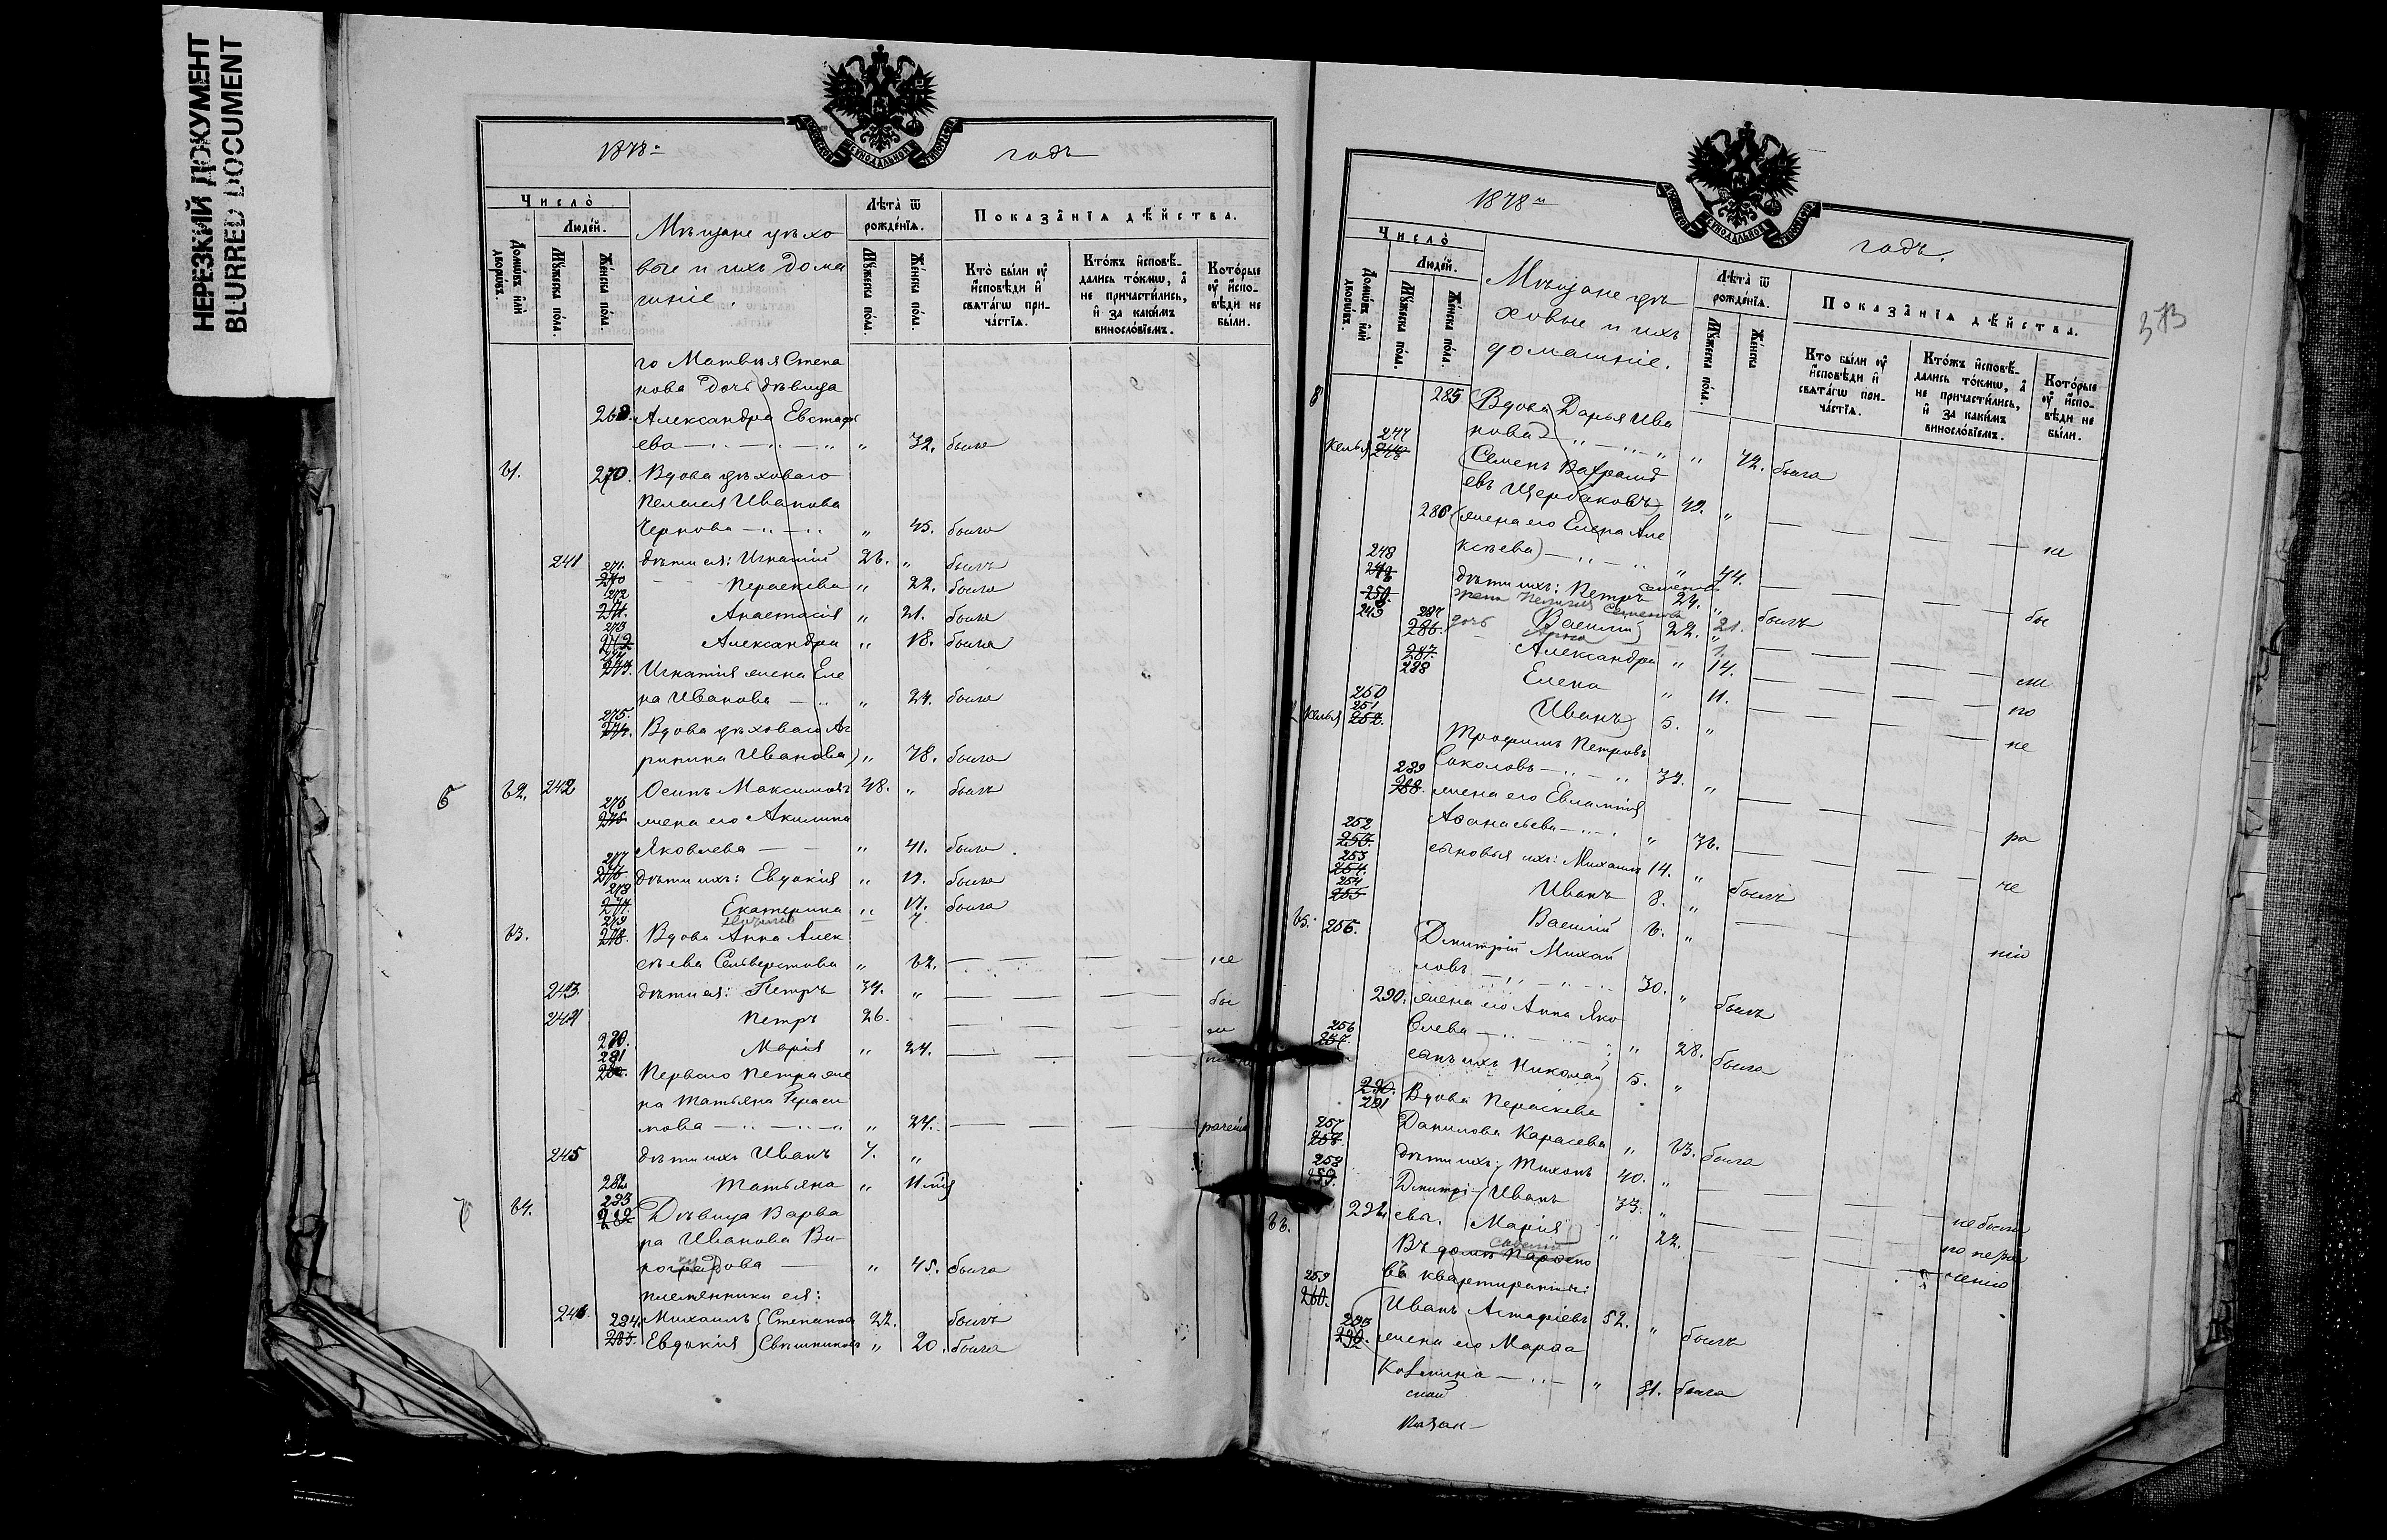 НЕРЕЗКИЙ ДОКУМЕНТ
BLURRED DOCUMENT
1878 годъ
Число̀
Людей.
Домовъ или дворовъ.
Мужеска пола.
Женска пола.
Мѣщане цѣхо
вые и ихъ дома
шніе.
Лѣта ѿ рожденїѧ.
Мужеска пола.
Женска пола.
Показанїѧ дѣйства.
Кто были оу исповѣди и свѧтагѡ причастїѧ.
Ктожъ исповѣдались токмѡ, а не причастились, и за какимъ винословїемъ.
Которые оу исповѣди не были.
го Матвѣя Степа
нова дочь дѣвица
269. Александра Евстафь
ева " 32. была
61. 270. Вдова цѣховаго
Пелагея Иванова
Чернова " 45. была
241 дѣти ея: Игнатій 26. " былъ
271. 270 Параскева " 22. была
272 271. Анастасія " 21. была
273 272 Александра " 18. была
274 273. Игнатія жена Еле
на Иванова " 24. была
275. 274. Вдова цѣховаго Аг
рипина Иванова) " 78. была
6 62. 242 Осипъ Максимовъ 48. " былъ
276 275 жена его Акилина
Яковлева " 41. была.
277 276. дѣти ихъ: Евдокія " 19. была
278 277. Екатерина " 17. была
63. 279 278. Вдова Анна Алек
сѣева Селиверстова " 62. не
243 дѣти ея: Петръ 34. " бы
244 Петръ 26. ли
280. Марія " 24.
281 280. Перваго Петра же
на Татьяна Гераси
мова " 24. раченію
245 дѣти ихъ Иванъ 7. "
282 Татьяна "
7 64. 283 282 Дѣвица Варва
ра Иванова Ви-
ноградова " 45. была
племянники ея:
246 284. Михаилъ Степановы 22. былъ
285. Евдокія " 20. была
1878 годъ.
373
Число̀
Людей.
Домовъ или дворовъ.
Мужеска пола.
Женска пола.
Мѣщане цѣ
ховые и ихъ
домашніе.
Лѣта ѿ рожденїѧ.
Мужеска пола.
Женска
Показанїѧ дѣйства.
Кто были оу исповѣди и свѧтагѡ причастїѧ.
Ктожъ исповѣдались токмѡ, а не причастились, и за какимъ винословїемъ.
Которые оу исповѣди не были.
8 285 (Вдова Дарья Ива
нова) " 72. была
Келья 247 248 (Семенъ
евъ Щербаковъ) 49. "
286 (жена его Елена Але
ксѣева) " 44. не
248 249 дѣти ихъ: Петръ Семеновъ 24. " былъ бы
250. 249 Василій 22. "
287 286. дочь Анна 1.
287. Александра " 14. ли
288 Елена " 11. по
250 Иванъ) 5. " не
Келья 251 252. Трофимъ Петровъ
Соколовъ 39. " ра
289 288. жена его Евлампія
Аѳанасьева " 36. че
252 253. сыновья ихъ: Михаилъ 14. " былъ
253 254. Иванъ 8. "
254 255 Василій 6. " нію
65. 256. Дмитрій Михай
ловъ 30. " былъ
290. жена его Анна Яко
влева " 28. была
256 257 сынъ ихъ Николай 5. "
290. 291 Вдова Параскева
Данилова Карасева " 63. была
257 258. дѣти ихъ: Тихонъ 40. "
258 259. Дмитрі- Иванъ 33. " не были
292. евы. Марія " 22. по нера
66. Въ домѣ чению
въ квартирантъ:
259 260. Иванъ Астафіевъ 52. " былъ
293 292. жена его Марѳа
Козмина " 51. была